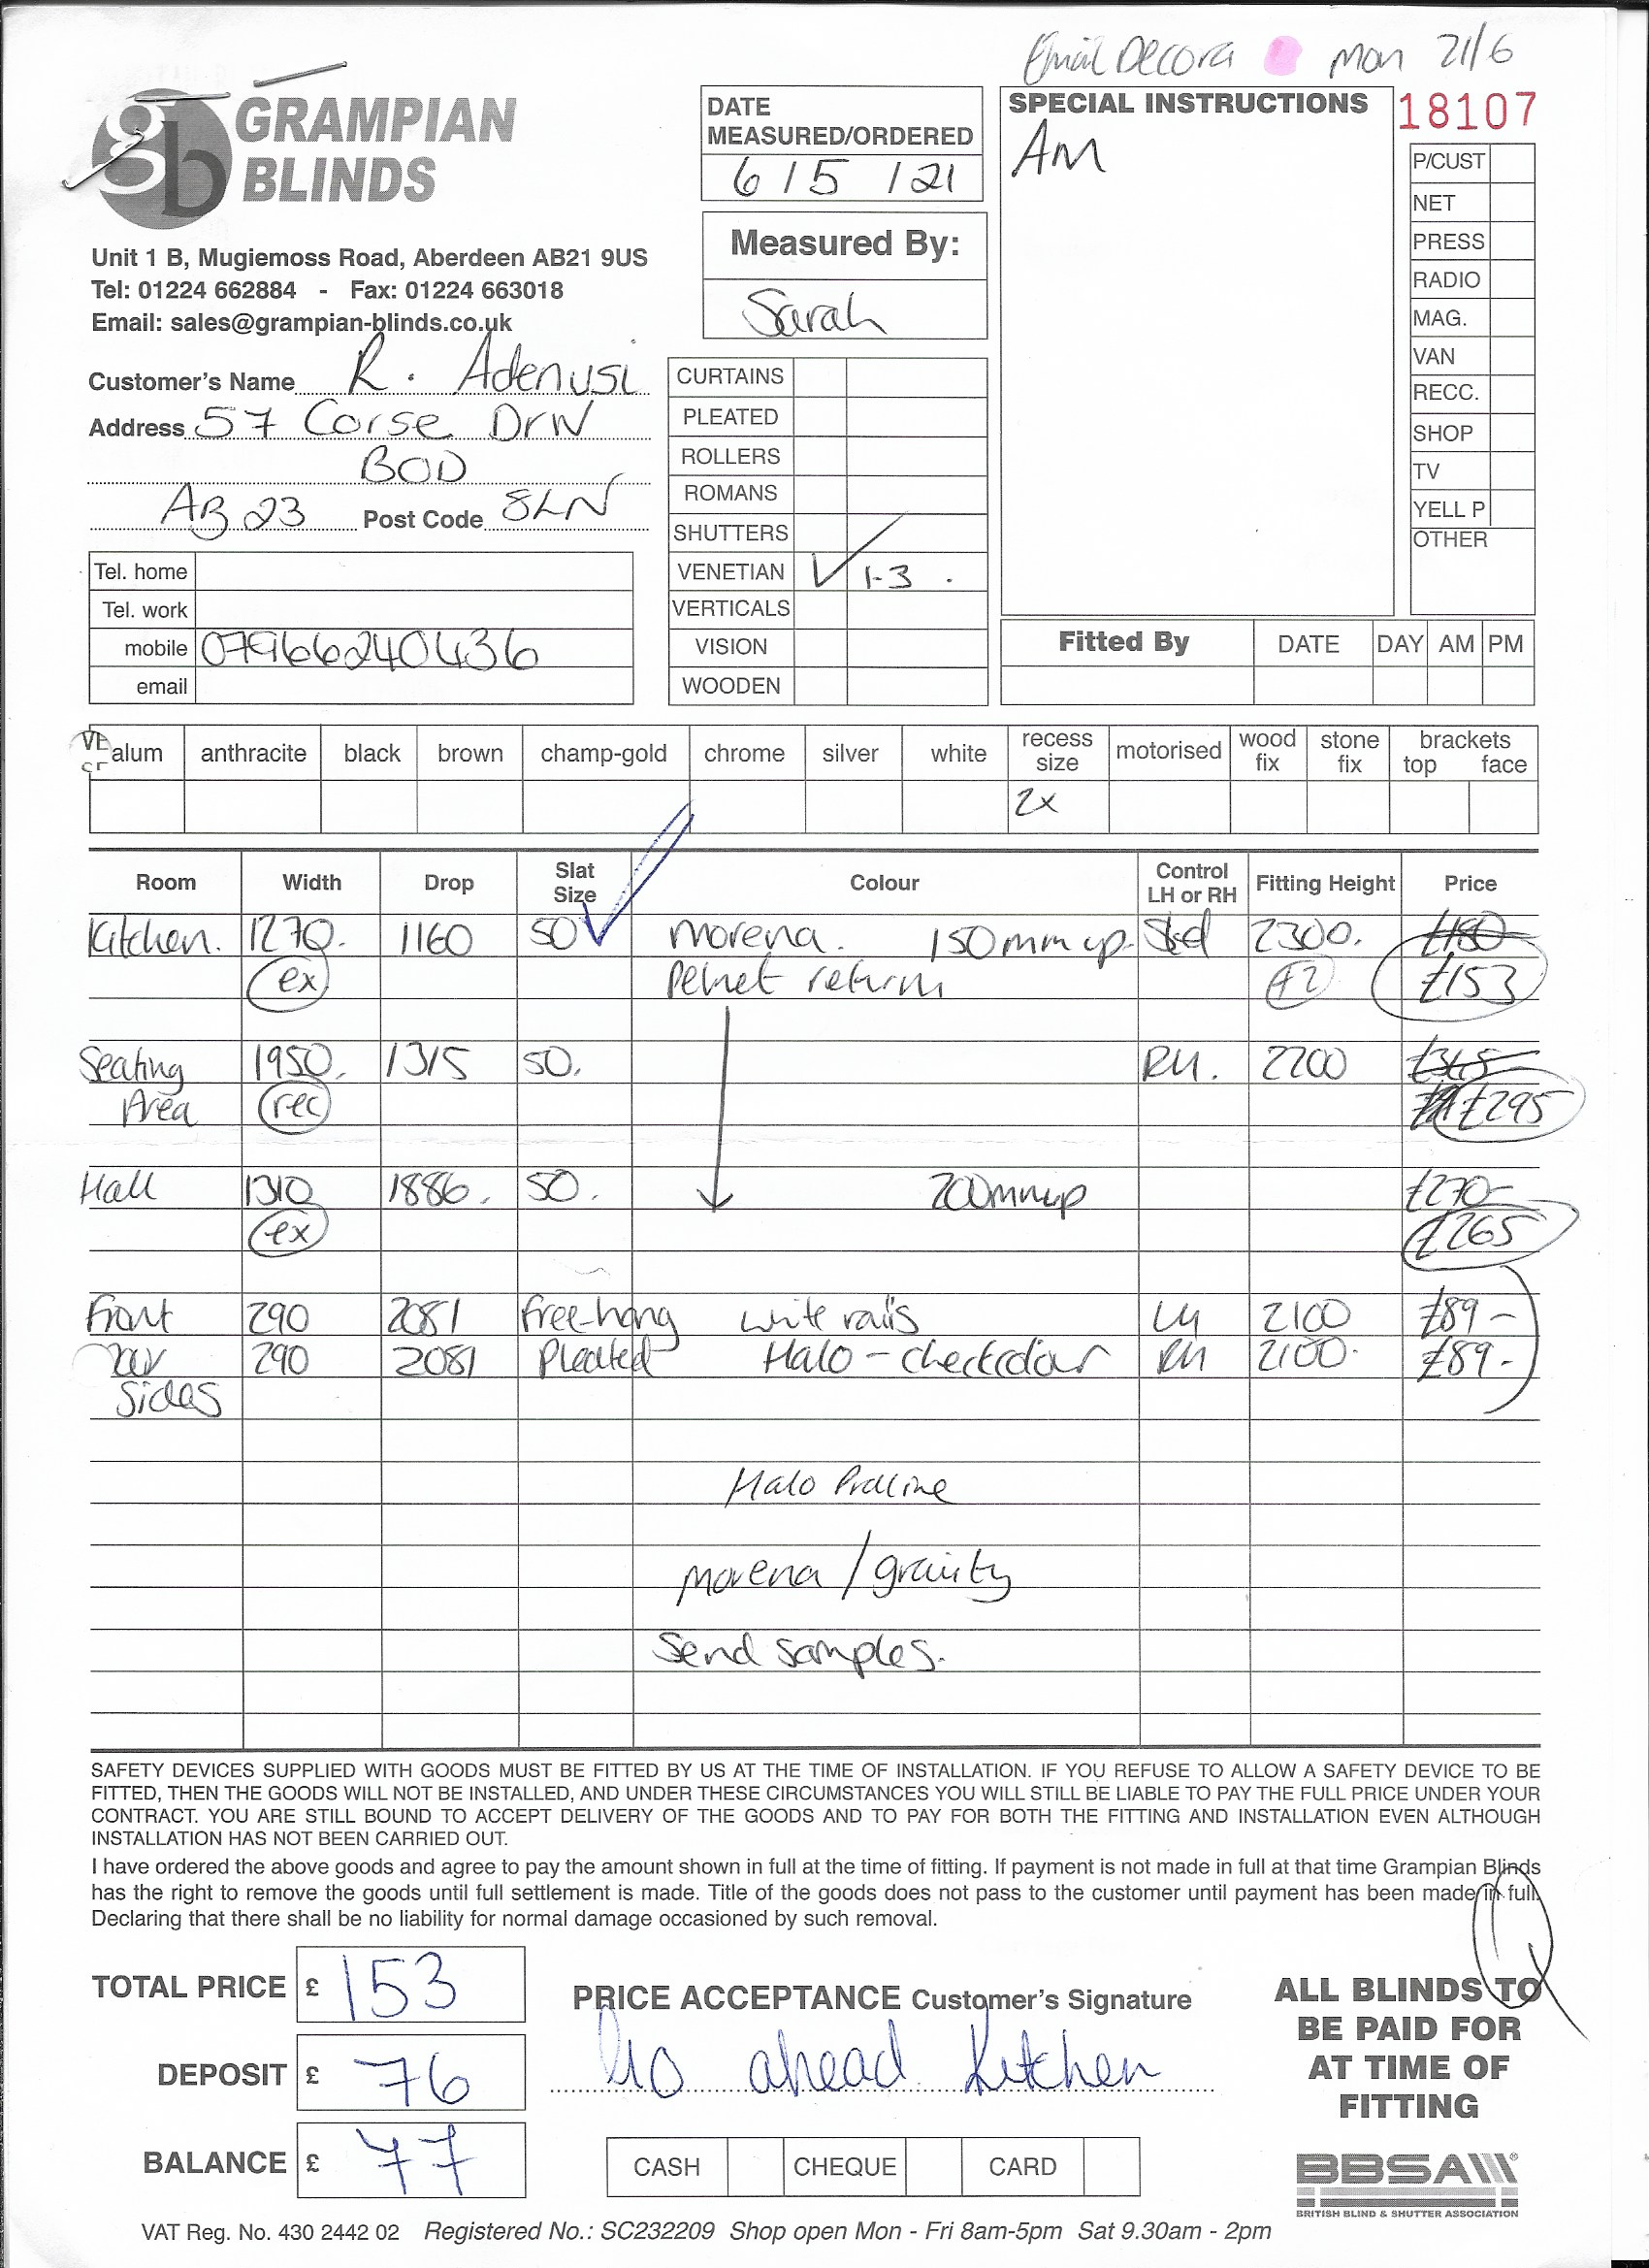 Email Decora mon 21/6
gb GRAMPIAN BLINDS
Unit 1 B, Mugiemoss Road, Aberdeen AB21 9US
Tel: 01224 662884 - Fax: 01224 663018
Email: sales@grampian-blinds.co.uk
Customer's Name R. Adenusi
Address 57 Corse Driv
BOD
AB23 Post Code 8LN
Tel. home
Tel. work
mobile 07966240436
email
DATE MEASURED/ORDERED
6/5/21
Measured By:
Sarah
CURTAINS
PLEATED
ROLLERS
ROMANS
SHUTTERS
VENETIAN ✓ 1-3.
VERTICALS
VISION
WOODEN
SPECIAL INSTRUCTIONS
Am
18107
P/CUST
NET
PRESS
RADIO
MAG.
VAN
RECC.
SHOP
TV
YELL P
OTHER
Fitted By DATE DAY AM PM
alum anthracite black brown champ-gold chrome silver white recess size motorised wood fix stone fix brackets top face
2x
Room Width Drop Slat Size Colour Control LH or RH Fitting Height Price
Kitchen. 1270. 1160 50 morena. 150mm up. Std 2300. £180
ex Pelmet returns £153
Seating 1950. 1315 50. RH. 2200 £345
Area rec £295
Hall 1310 1886. 50. 200mm up £270-
ex £265
Front 290 2081 free-hang white rails LH 2100 £89-
290 2081 Pleated Halo - check colour RH 2100. £89-
Sides
Halo Praline
morena / gravity
Send samples.
SAFETY DEVICES SUPPLIED WITH GOODS MUST BE FITTED BY US AT THE TIME OF INSTALLATION. IF YOU REFUSE TO ALLOW A SAFETY DEVICE TO BE
FITTED, THEN THE GOODS WILL NOT BE INSTALLED, AND UNDER THESE CIRCUMSTANCES YOU WILL STILL BE LIABLE TO PAY THE FULL PRICE UNDER YOUR
CONTRACT. YOU ARE STILL BOUND TO ACCEPT DELIVERY OF THE GOODS AND TO PAY FOR BOTH THE FITTING AND INSTALLATION EVEN ALTHOUGH
INSTALLATION HAS NOT BEEN CARRIED OUT.
I have ordered the above goods and agree to pay the amount shown in full at the time of fitting. If payment is not made in full at that time Grampian Blinds
has the right to remove the goods until full settlement is made. Title of the goods does not pass to the customer until payment has been made in full.
Declaring that there shall be no liability for normal damage occasioned by such removal.
TOTAL PRICE £ 153
DEPOSIT £ 76
BALANCE £ 77
PRICE ACCEPTANCE Customer's Signature
Go ahead Kitchen
CASH CHEQUE CARD
ALL BLINDS TO
BE PAID FOR
AT TIME OF
FITTING
BBSA
BRITISH BLIND & SHUTTER ASSOCIATION
VAT Reg. No. 430 2442 02 Registered No.: SC232209 Shop open Mon - Fri 8am-5pm Sat 9.30am - 2pm